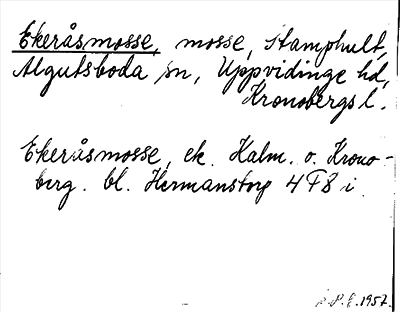 Ekeråsmosse, mosse, Stamphult,
Algutsboda sn, Uppvidinge hd,
Kronobergs l.
Ekeråsmosse, ek. Kalm. o. Krono-
berg. bl. Hermanstorp 4F8 i
1957.